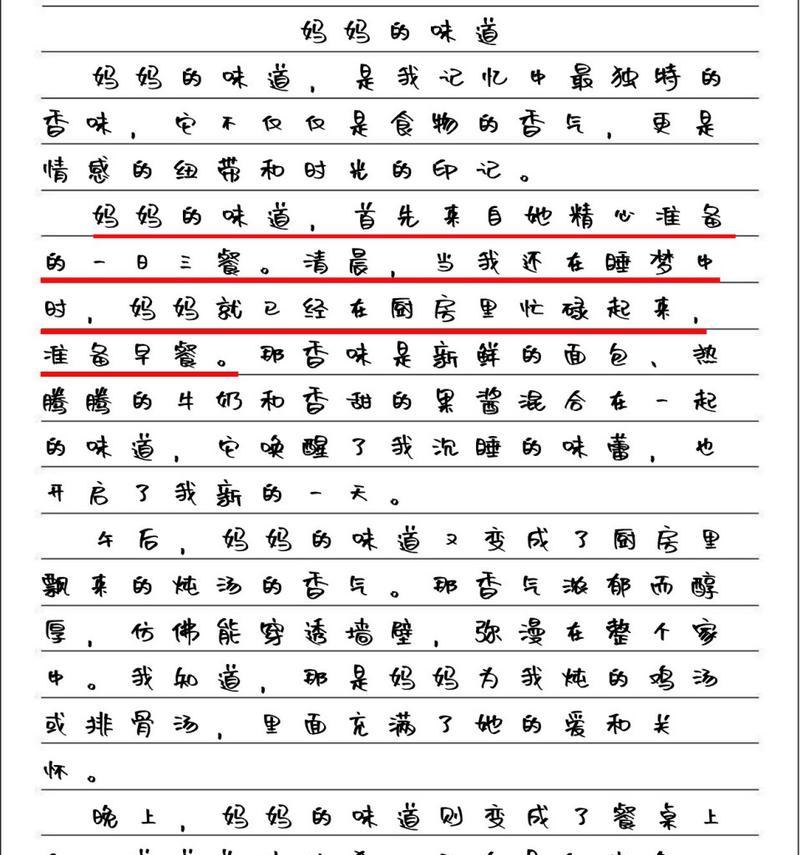 妈妈的味道
妈妈的味道，是我记忆中最独特的
香味，它不仅仅是食物的香气，更是
情感的纽带和时光的印记。
妈妈的味道，首先来自她精心准备
的一日三餐。清晨，当我还在睡梦中
时，妈妈就已经在厨房里忙碌起来，
准备早餐。那香味是新鲜的面包、热
腾腾的牛奶和香甜的果酱混合在一起
的味道，它唤醒了我沉睡的味蕾，也
开启了我新的一天。
午后，妈妈的味道又变成了厨房里
飘来的炖汤的香气。那香气浓郁而醇
厚，仿佛能穿透墙壁，弥漫在整个家
中。我知道，那是妈妈为我炖的鸡汤
或排骨汤，里面充满了她的爱和关
怀。
晚上，妈妈的味道则变成了餐桌上